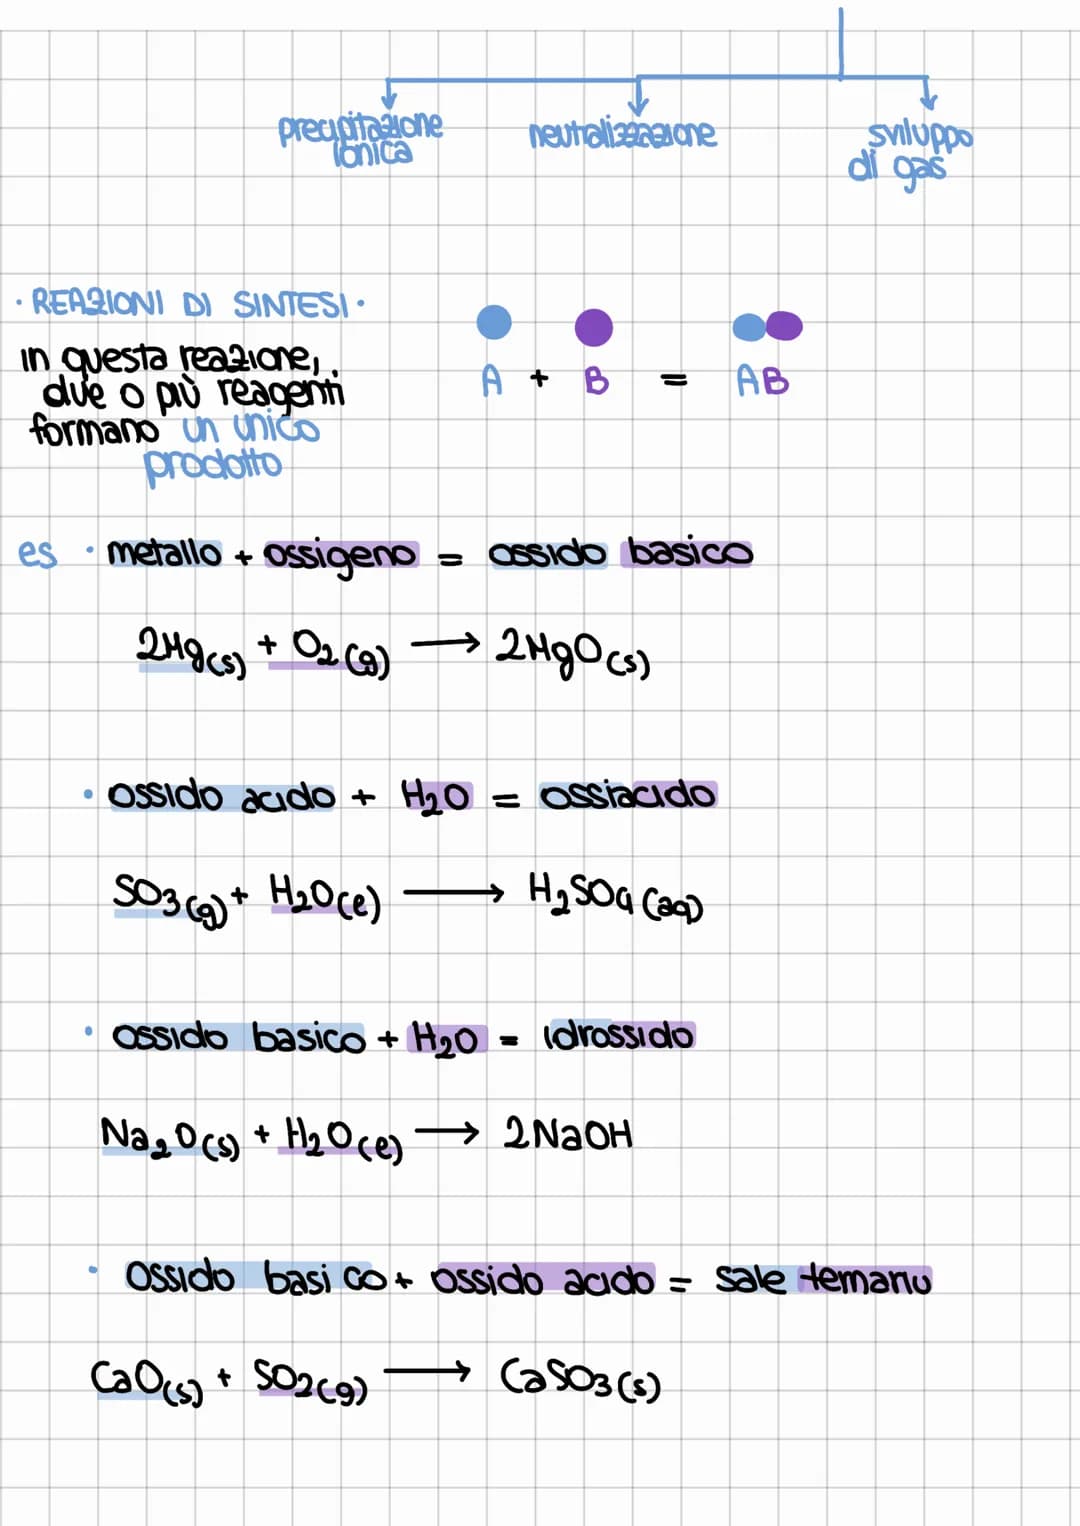 precipitazione neutralizzazione sviluppo
ionica di gas
· REAZIONI DI SINTESI ·
in questa reazione,
due o più reagenti
formano un unico
prodotto
A + B = AB
es · metallo + ossigeno = ossido basico
2Mg(s) + O2(g) → 2MgO(s)
· ossido acido + H2O = ossiacido
SO3(g) + H2O(e) → H2SO4(aq)
· ossido basico + H2O = idrossido
Na2O(s) + H2O(e) → 2NaOH
· ossido basico + ossido acido = sale ternario
CaO(s) + SO2(g) → CaSO3(s)